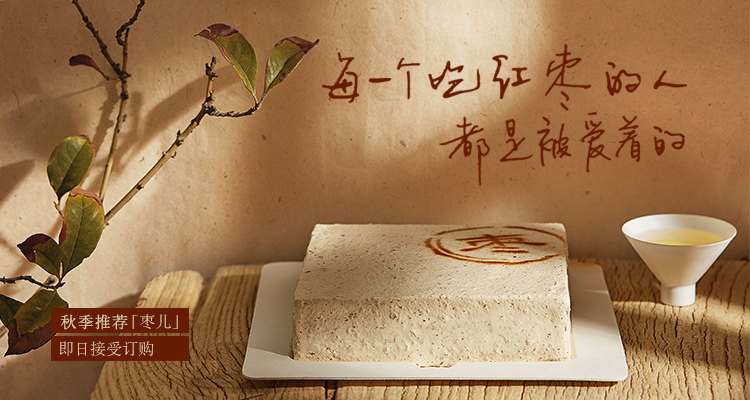 每一个吃红枣的人
都是被爱着的
枣
秋季推荐「枣儿」
即日接受订购